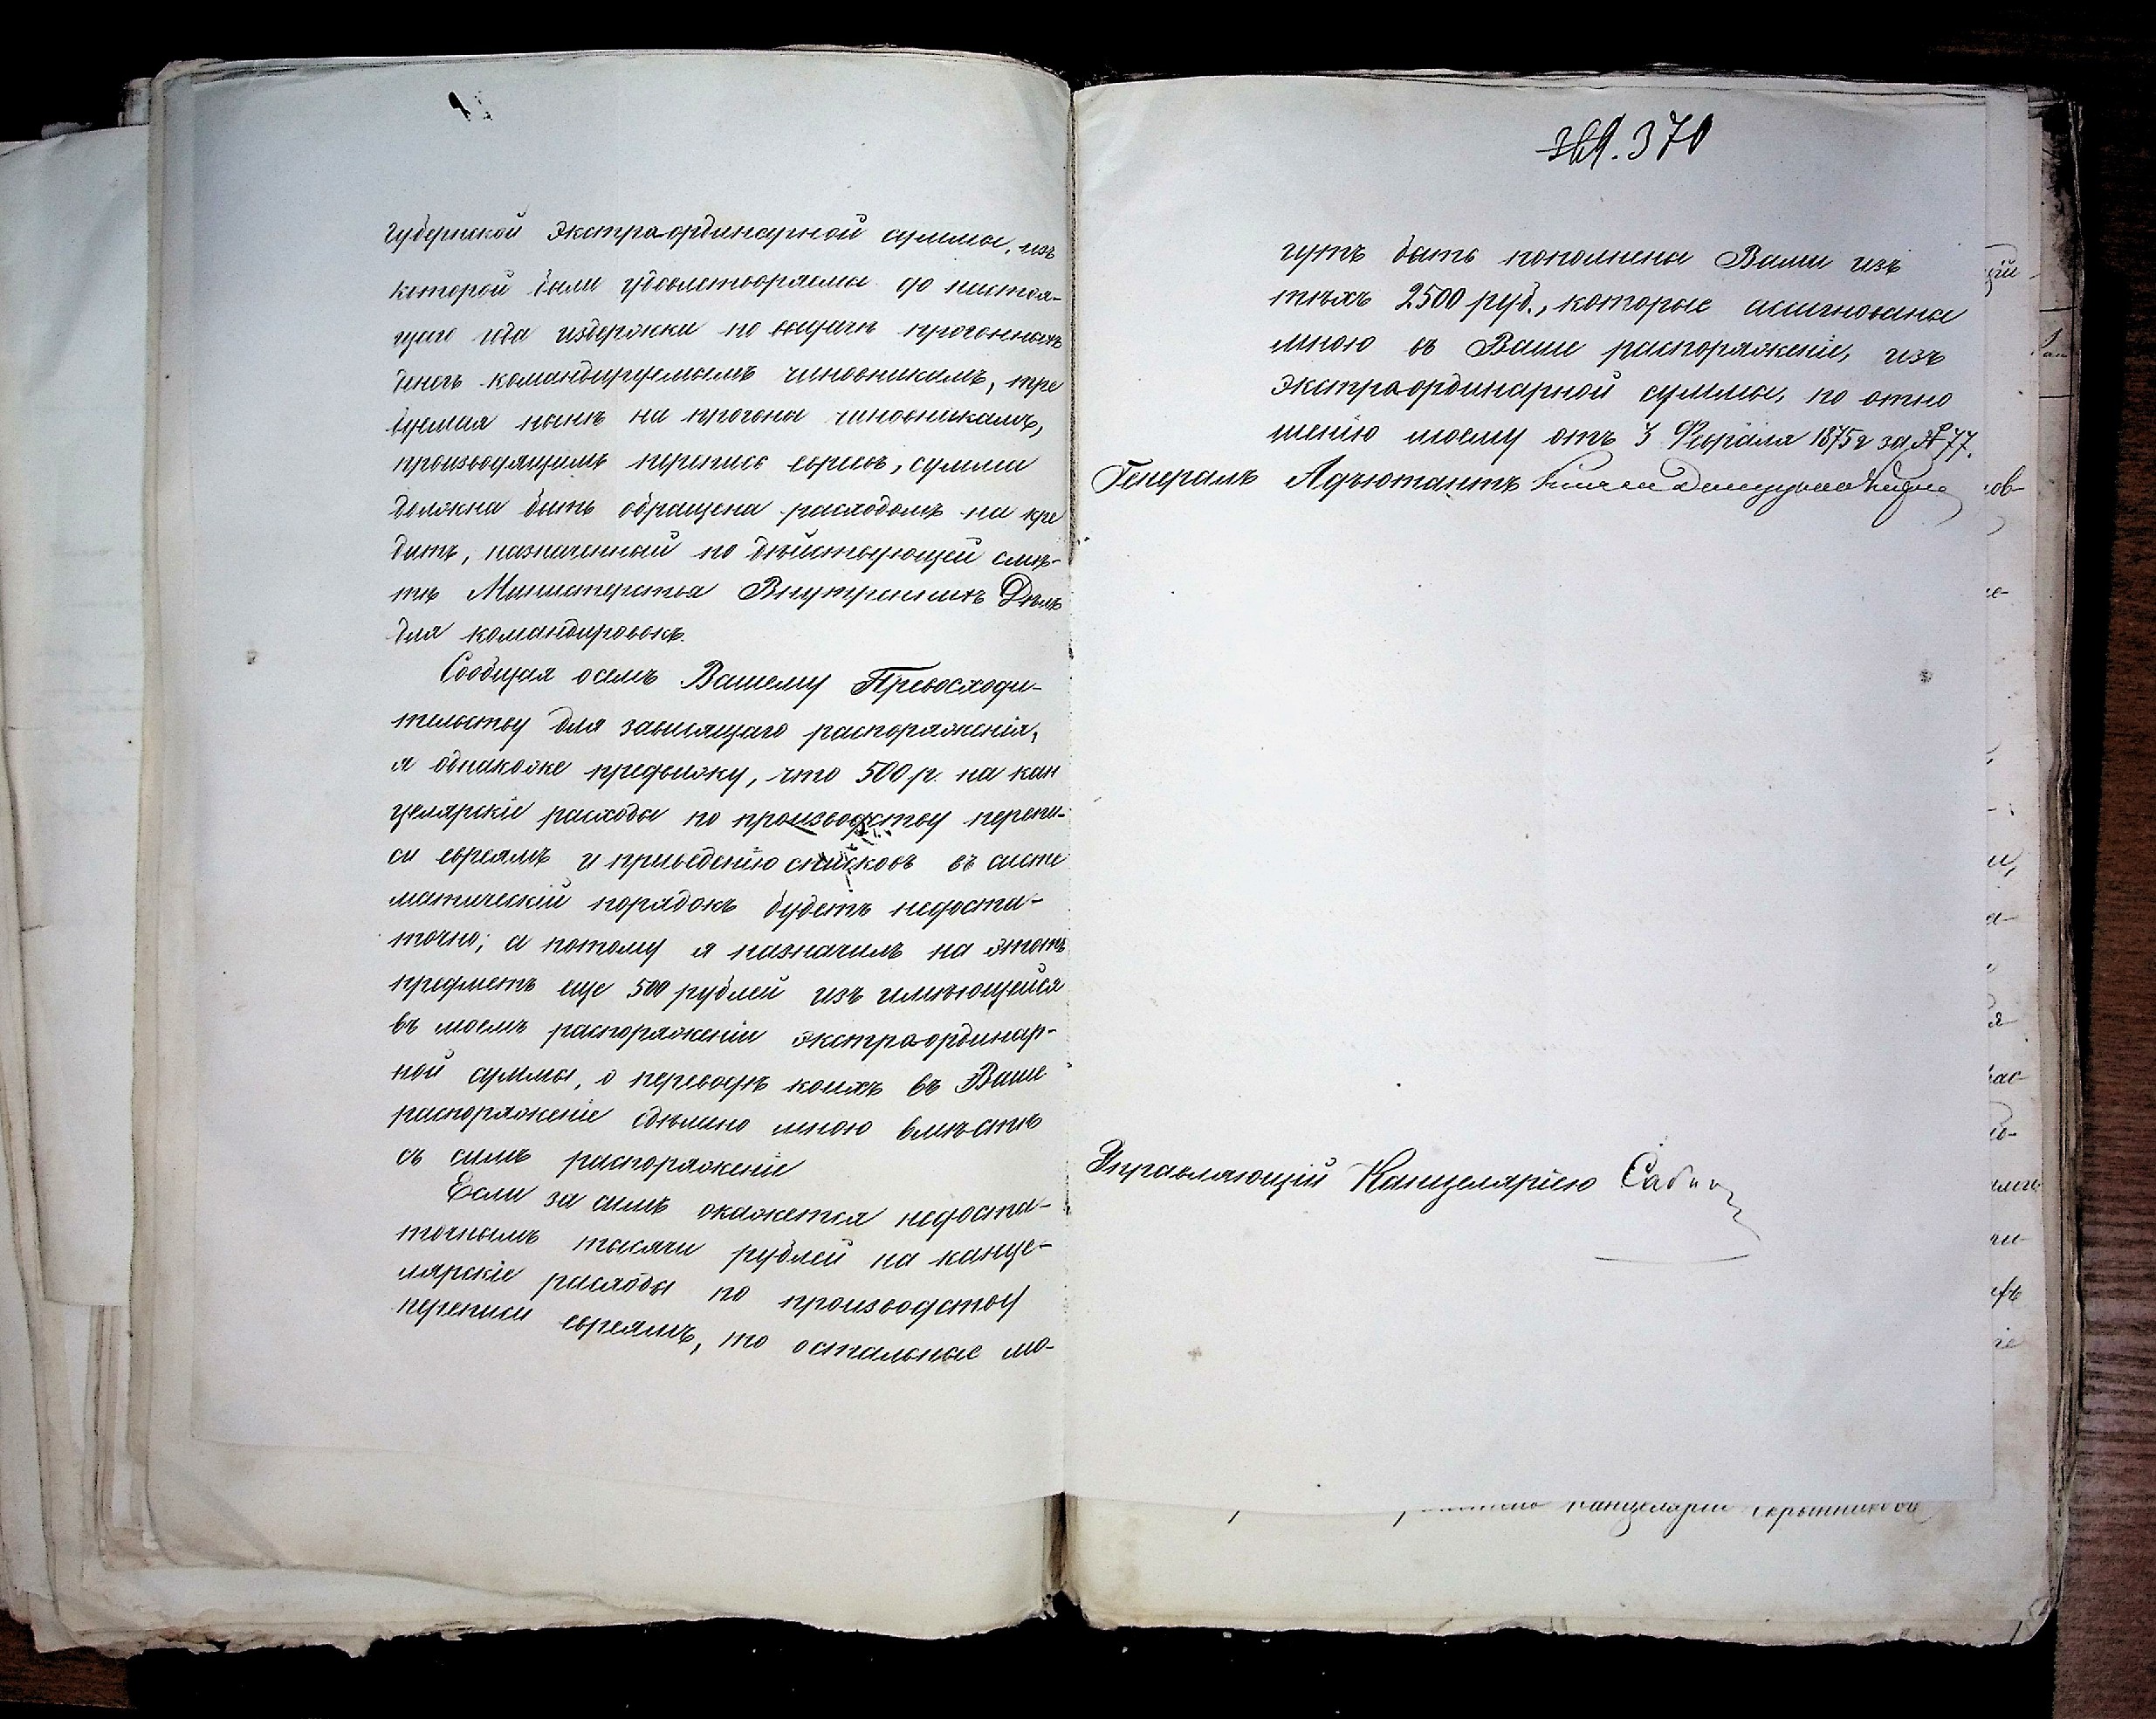 губернской экстра-ординарной суммы, изъ
которой были удовлетворяемы до настоя-
щаго года издержки по выдачѣ прогонныхъ
денегъ командируемымъ чиновникамъ, тре
буемая нынѣ на прогоны чиновникамъ,
производящимъ перепись евреевъ, сумма
должна быть обращена расходомъ на кре
дитъ, назначенный по дѣйствующей смѣ-
тѣ Министерства Внутреннихъ Дѣлъ
для командировокъ.
Сообщая о семъ Вашему Превосходи-
тельству для зависящаго распоряженія,
я однакоже предвижу, что 500 р. на кан
целярскіе расходы по производству перепи-
си евреямъ и приведенію списковъ въ систе
матическій порядокъ будетъ недоста-
точно; а потому я назначилъ на этотъ
предметъ еще 500 рублей изъ имѣющейся
въ моемъ распоряженіи экстра-ординар-
ной суммы, о переводѣ коихъ въ Ваше
распоряженіе сдѣлано мною вмѣстѣ
съ симъ распоряженіе
Если за симъ окажется недоста-
точнымъ тысячи рублей на канце-
лярскіе расходы по производству
переписи евреямъ, то остальные мо-
369. 370
гутъ быть пополнены Вами изъ
тѣхъ 2500 руб., которые ассигнованы
мною въ Ваше распоряженіе, изъ
экстра-ординарной суммы, по отно
шенію моему отъ 3 Февраля 1875 г за № 77.
Генералъ Адъютантъ
Управляющій Канцеляріею
Канцеляріи